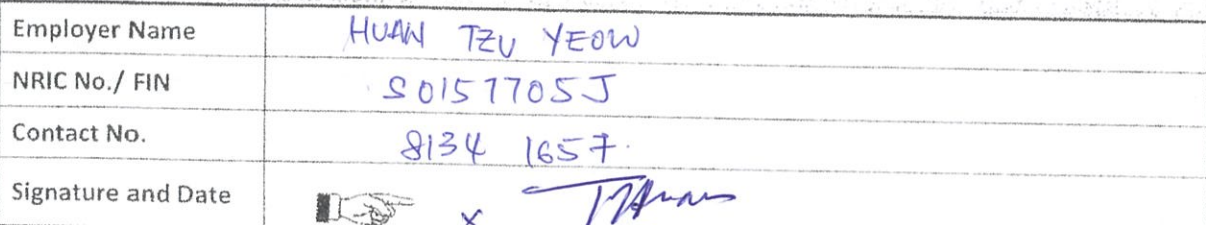 Employer Name HUAN TZU YEOW
NRIC No./ FIN S0157705J
Contact No. 8134 1657
Signature and Date x